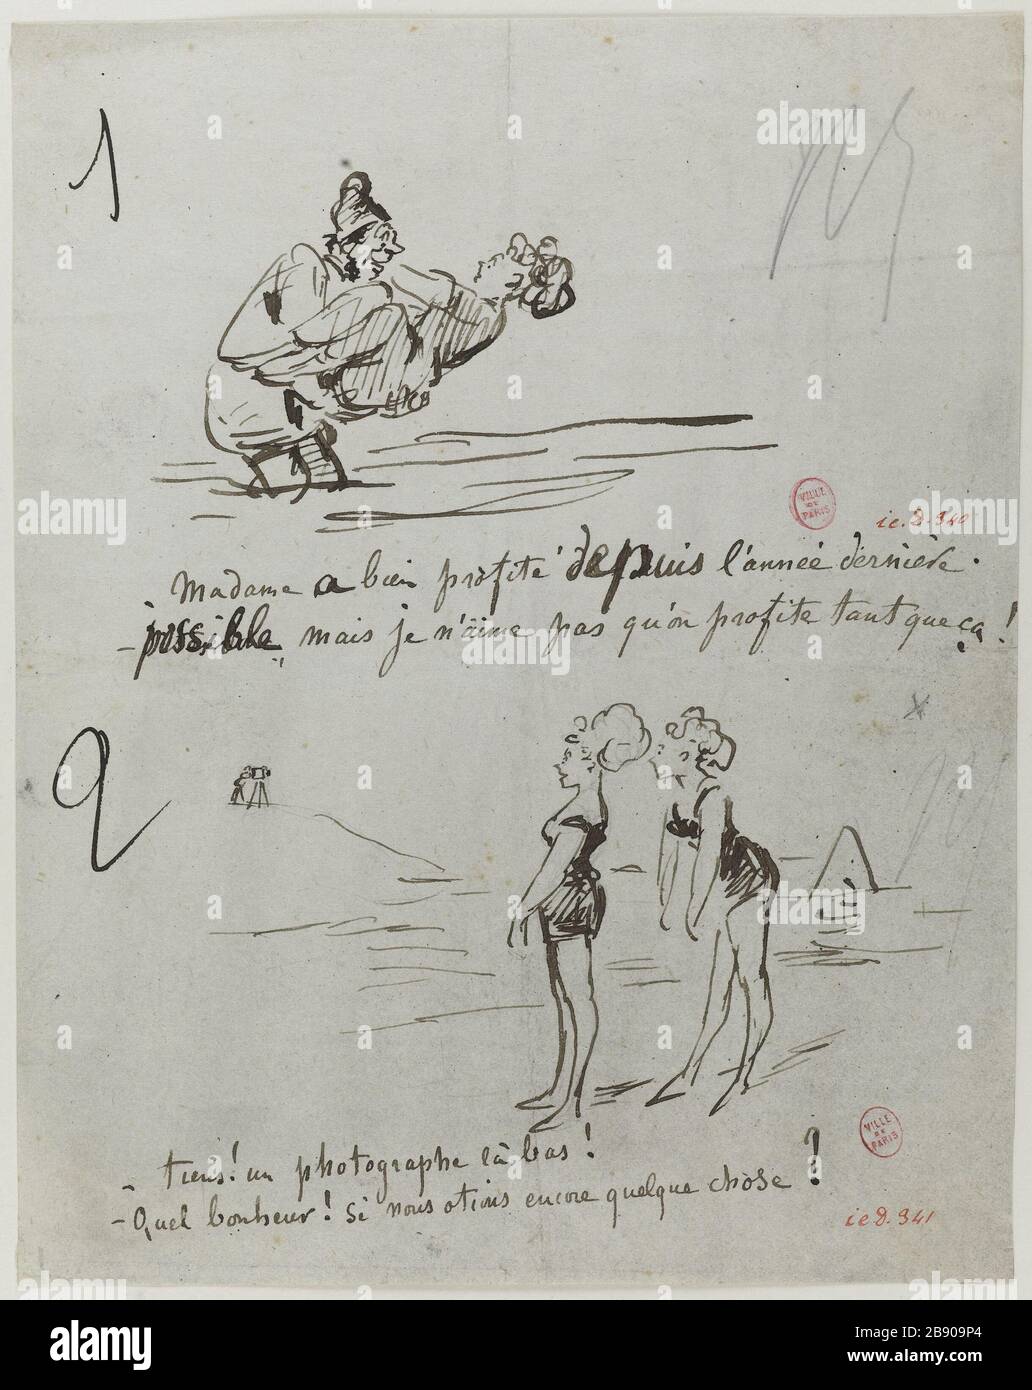 1
Madame a bien profité depuis l'année dernière.
- possible, mais je n'aime pas qu'on profite tant que ça !
VILLE DE PARIS
ic.D.340
2
- tiens ! un photographe là bas !
- Quel bonheur ! si nous otions encore quelque chose ?
VILLE DE PARIS
icD.341
alamy
alamy
Image ID: 2B909P4
www.alamy.com